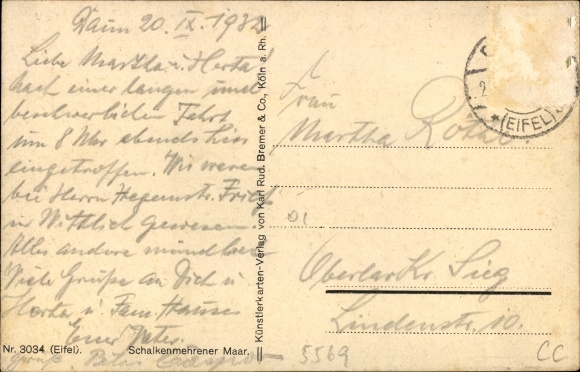 Daun 20. IX. 1932
Liebe Martha u. Herta!
Nach einer langen und
beschwerlichen Fahrt
um 8 Uhr abends hier
eingetroffen. Wir waren
bei Herrn
in Wittlich gewesen.
Alles andere mündlich.
Viele Grüße an Dich u.
Herta u. Fam.
Euer Vater.
Gruß Peter
Nr. 3034 (Eifel). Schalkenmehrener Maar.
Künstlerkarten-Verlag von Karl Rud. Bremer & Co., Köln a. Rh.
(EIFEL)
Frau
Martha
Oberlar Kr. Sieg
Lindenstr. 10.
01
5569
CC